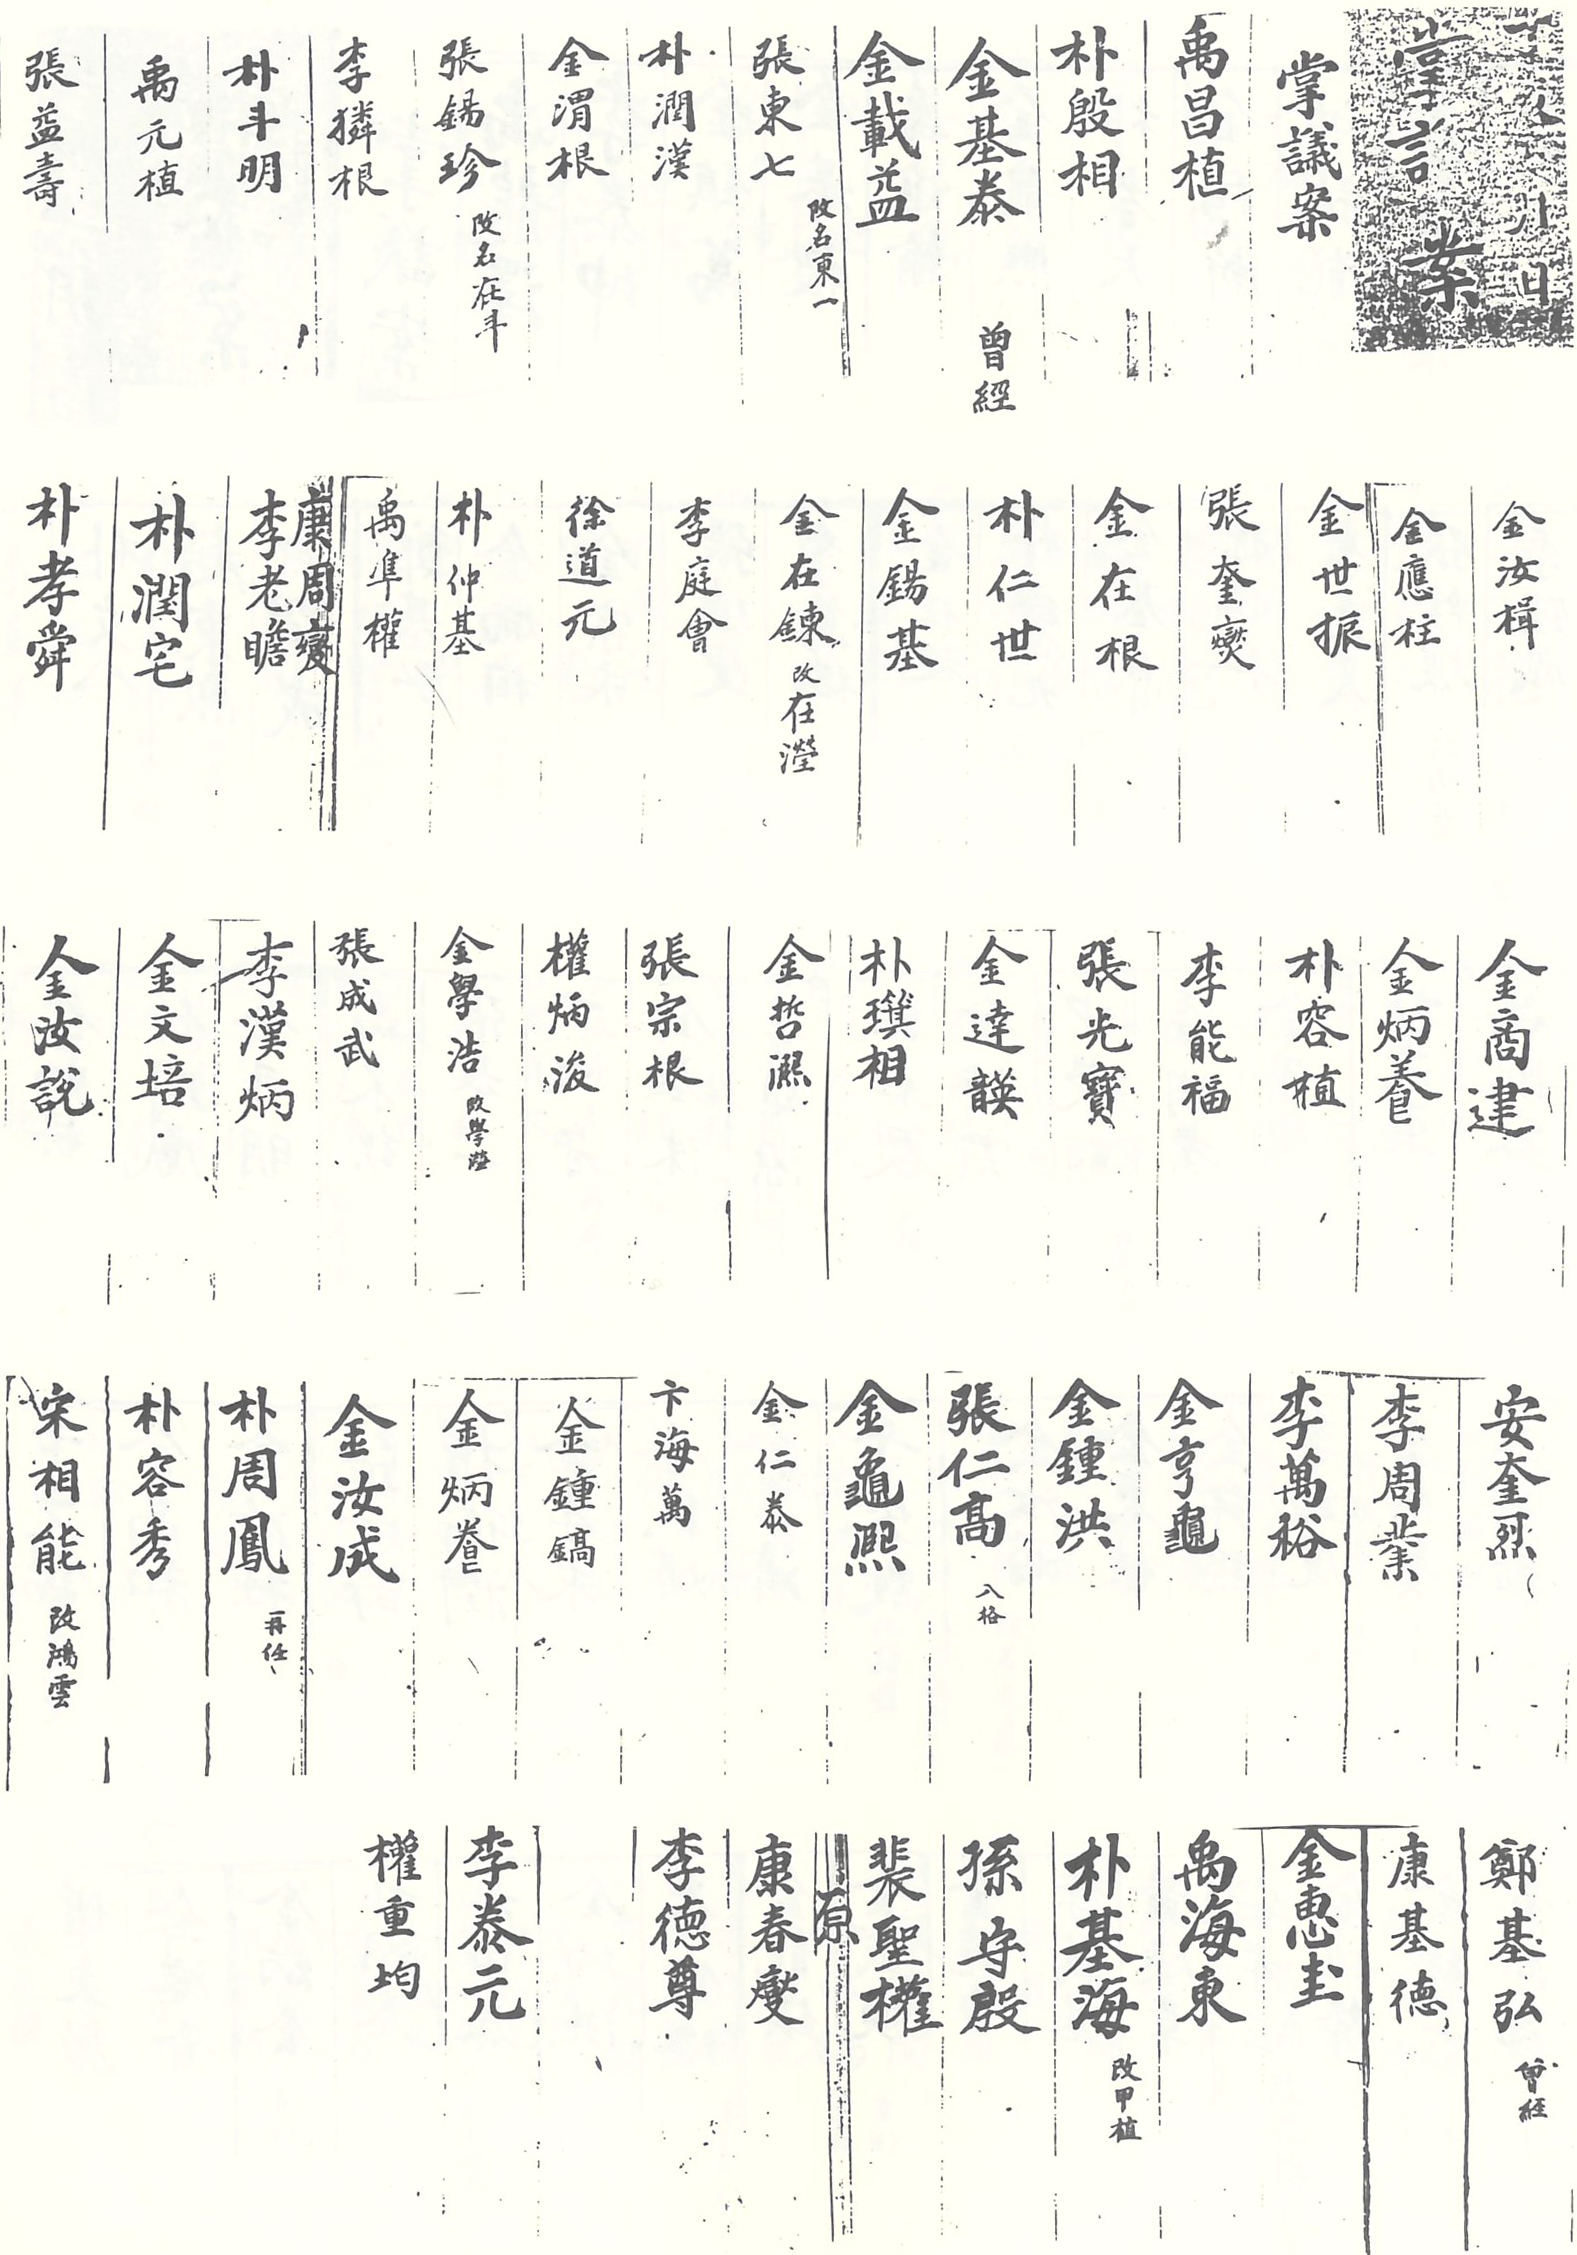 掌議案
掌議案
禹昌植
朴殷相
金基泰 曾經
金載益
張東七 改名東一
朴潤漢
金渭根
張錫珍 改名在斗
李獜根
朴斗明
禹元植
張益壽
金汝楫
金應柱
金世振
張奎燮
金在根
朴仁世
金錫基
金在鍊 改在瀅
李庭會
徐道元
朴仲基
禹準權
康周夔
李老瞻
朴潤宅
朴孝舜
金商建
金炳養
朴容植
李能福
張光寶
金達韺
朴璜相
金哲凞
張宗根
權炳浚
金學浩 改學瀅
張成武
李漢炳
金文培
金汝說
安奎烈
李周業
李萬裕
金亨龜
金鍾洪
張仁高 入格
金龜凞
金仁泰
卞海萬
金鍾鎬
金炳眷
金汝成
朴周鳳 再任
朴容秀
宋相能 改鴻雲
鄭基弘 曾經
康基德
金惠圭
禹海東
朴基海 改甲植
孫守殷
裴聖權
原
康春燮
李德尊
李泰元
權重均